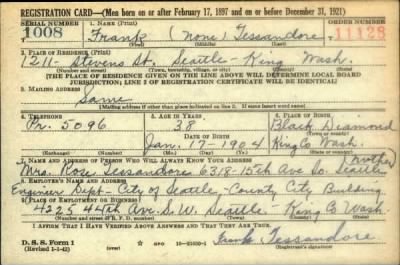 REGISTRATION CARD—(Men born on or after February 17, 1897 and on or before December 31, 1921)
SERIAL NUMBER 1. NAME (Print) ORDER NUMBER
1008 Frank (none) Tessandore 11128
(First) (Middle) (Last)
2. PLACE OF RESIDENCE (Print)
1211 - Stevens St. Seattle - King Wash.
(Number and street) (Town, township, village, or city) (County) (State)
[THE PLACE OF RESIDENCE GIVEN ON THE LINE ABOVE WILL DETERMINE LOCAL BOARD
JURISDICTION; LINE 2 OF REGISTRATION CERTIFICATE WILL BE IDENTICAL]
3. MAILING ADDRESS
Same
[Mailing address if other than place indicated on line 2. If same insert word same]
4. TELEPHONE 5. AGE IN YEARS 6. PLACE OF BIRTH
Pr. 5096 38 Black Diamond
DATE OF BIRTH (Town or county)
Jan. 17 - 1904 King Co Wash.
(Exchange) (Number) (Mo.) (Day) (Yr.) (State or country)
7. NAME AND ADDRESS OF PERSON WHO WILL ALWAYS KNOW YOUR ADDRESS (Mother)
Mrs. Rose Tessandore 6318-15th Ave So. Seattle
8. EMPLOYER'S NAME AND ADDRESS
Engineer Dept - City of Seattle - County City Building
9. PLACE OF EMPLOYMENT OR BUSINESS
4225 44th Ave. S.W. Seattle - King Co Wash.
(Number and street or R. F. D. number) (Town) (County) (State)
I AFFIRM THAT I HAVE VERIFIED ABOVE ANSWERS AND THAT THEY ARE TRUE.
D. S. S. Form 1 GPO
(Revised 1-1-42) (over) Frank Tessandore
(Registrant's signature)